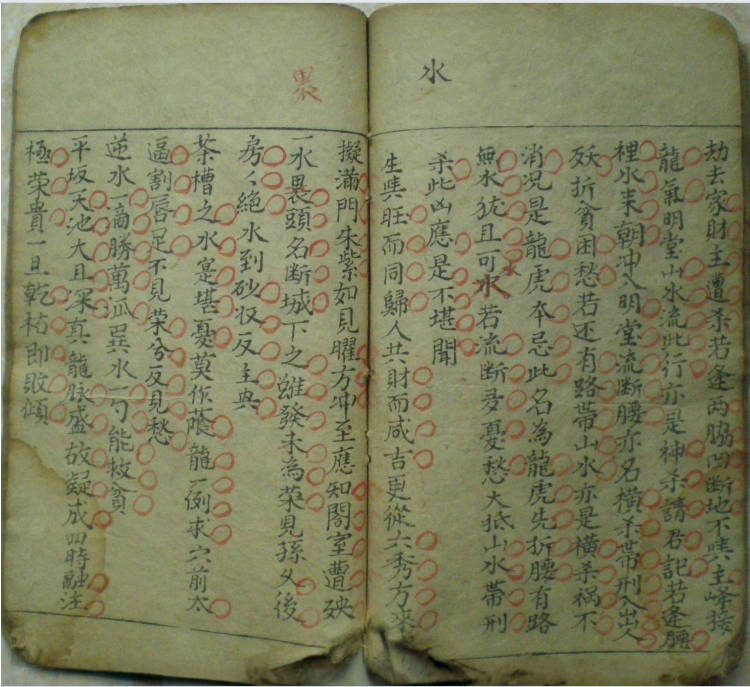 水
劫去家財主遭杀若逢两脇凹断地不吽主峰接
龍氣明堂山水流此行亦是神杀請君記若逢腰
裡水来朝冲入明堂流断腰亦名横杀帶刑入出人
殀折貧困愁若还有路帶山水亦是横杀祸不
消况是龍虎本忌此名為龍虎先折腰有路
無水犹且可水若流断多憂愁大抵山水帶刑
杀此凶應是不堪聞
生吽旺而同歸人共財而咸吉更從六秀方來
裹
擬滿門朱紫如見曜方冲至應知閤室遭殃
一水裹頭名断城下之雖發未為荣見孫久後
房〻絕水到砂収反主兴
茶槽之水寔堪憂莫作蔭龍一例求穴前太
逼割唇足不見荣兮反見愁
逆水一滴勝萬派巽水一勺能救貧
平坂天池大且深真龍脉盛故凝成四時融注
極荣貴一旦乾枯即敗傾